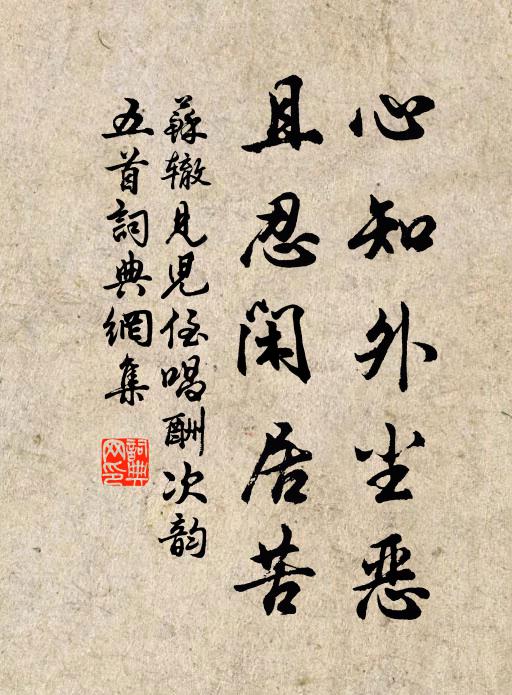 心知外尘恶
且忍闲居苦
蘇辙見児侄唱酬次韵
五首詞典網集
詞典网印